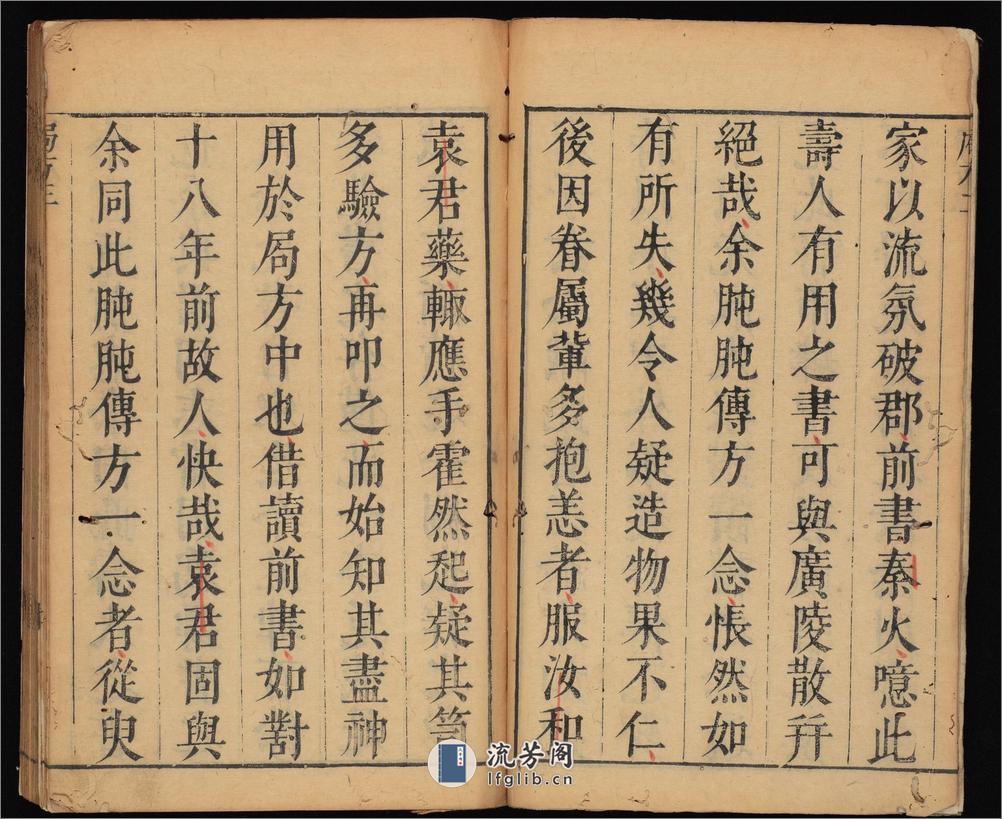 家以流氛破郡前書秦火噫此
壽人有用之書可與廣陵散幷
絕哉余肫肫傳方一念悵然如
有所失幾令人疑造物果不仁
後因眷屬輩多抱恙者服汝和
袁君藥輒應手霍然起疑其笥
多驗方再叩之而始知其盡神
用於局方中也借讀前書如對
十八年前故人快哉袁君固與
余同此肫肫傳方一念者從臾
流芳阁
lfglib.cn